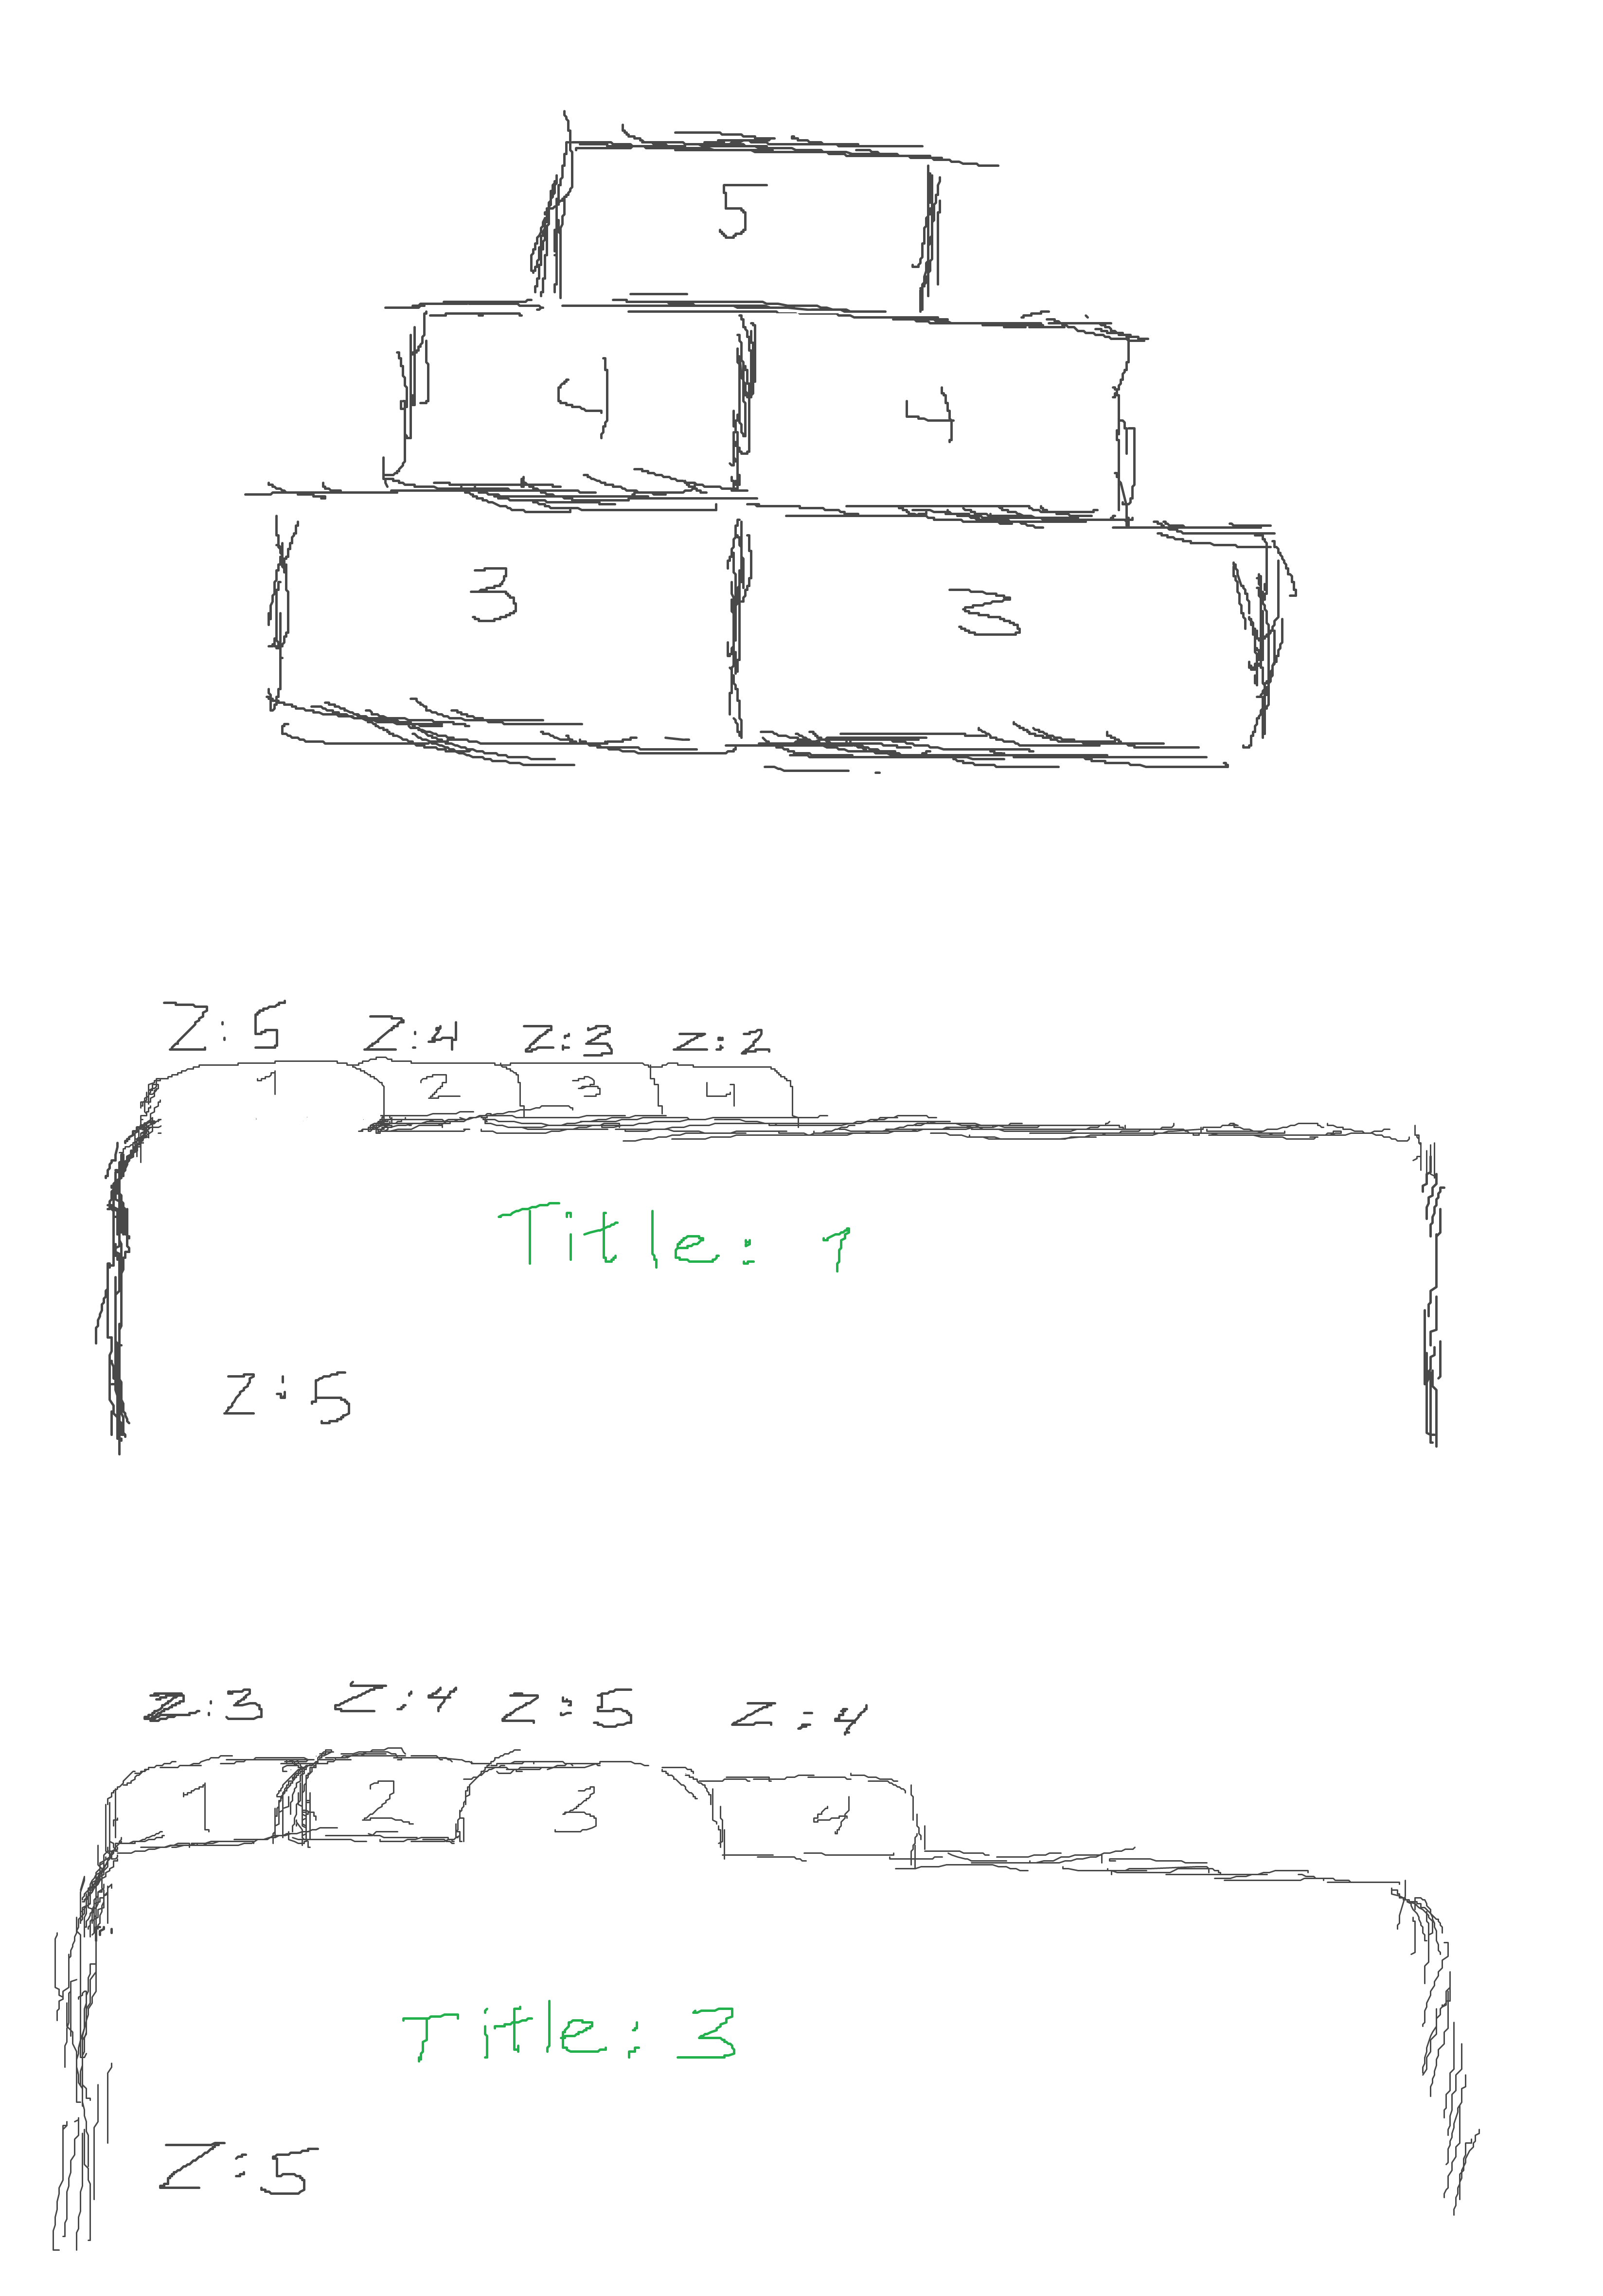 5
4 4
3 3
Z:5 Z:4 Z:3 Z:2
1 2 3 4
Title: 1
Z:5
Z:3 Z:4 Z:5 Z:4
1 2 3 4
Title: 3
Z:5